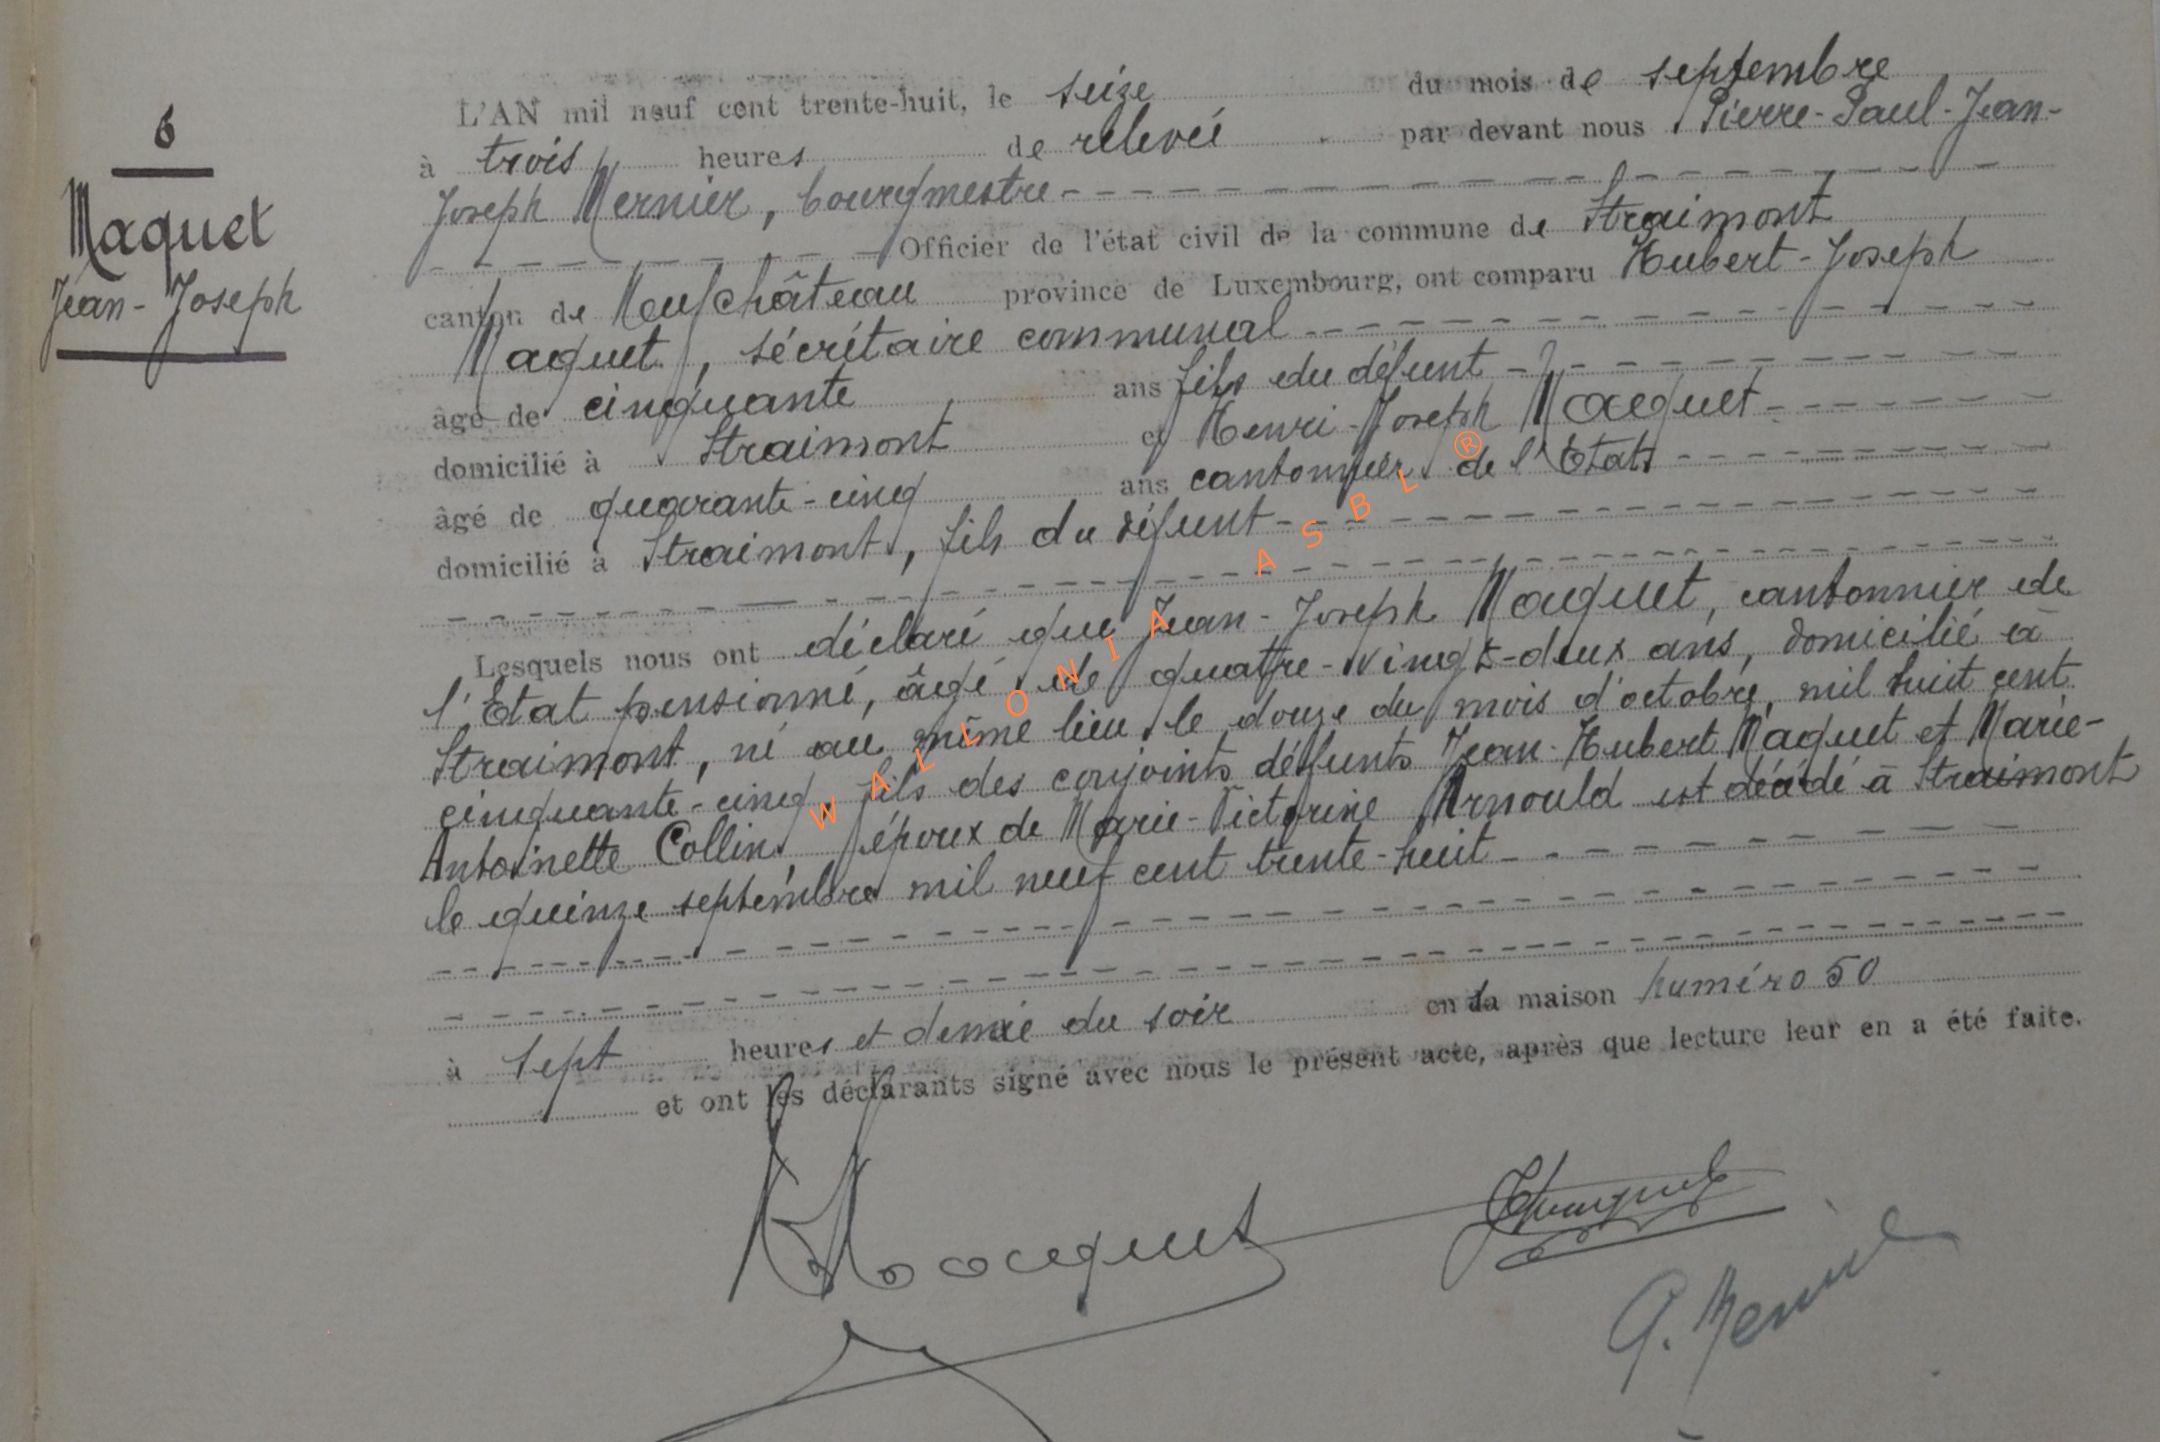 6
Maquet
Jean-Joseph
L'AN mil neuf cent trente-huit, le seize du mois de septembre
à trois heures de relevée par devant nous Pierre-Paul-Jean-
Joseph Mernier, bourgmestre
Officier de l'état civil de la commune de Straimont
canton de Neufchâteau province de Luxembourg, ont comparu Hubert-Joseph
Maquet, sécrétaire communal
âgé de cinquante ans fils du défunt
domicilié à Straimont et Henri-Joseph Maquet
âgé de quarante-cinq ans cantonnier de l'Etat,
domicilié à Straimont, fils du défunt
Lesquels nous ont déclaré que Jean-Joseph Maquet, cantonnier de
l'Etat pensionné, âgé de quatre-vingt-deux ans, domicilié à
Straimont, né au même lieu le douze du mois d'octobre, mil huit cent
cinquante-cinq, fils des conjoints défunts Jean-Hubert Maquet et Marie-
Antoinette Collin, époux de Marie-Victorine Arnould est décédé à Straimont
le quinze septembre mil neuf cent trente-huit
à sept heures et demie du soir en sa maison numéro 50
et ont les déclarants signé avec nous le présent acte, après que lecture leur en a été faite.
Maquet
WALLONIA ASBL ®